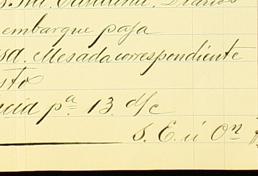 embarque paja
sa. Mesada correspondiente
sto
cia pª 13. d/c
S. E. ú Oⁿ